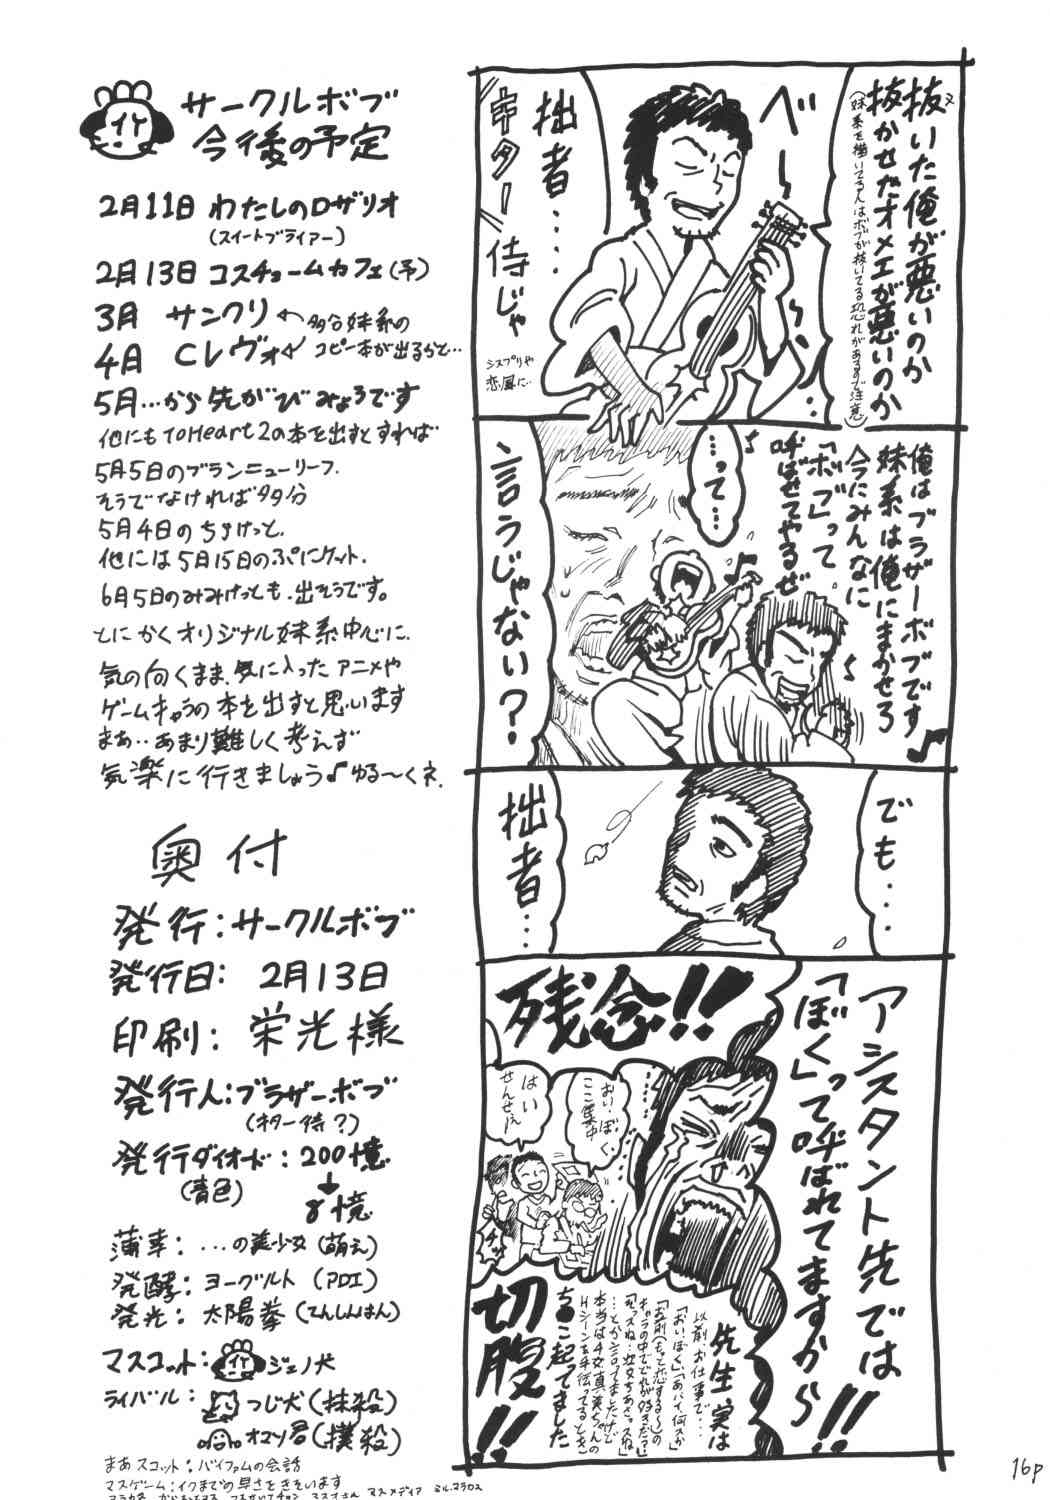 抜いた俺が悪いのか
抜かせたオメエが悪いのか
(妹系を描いてる人はボブが抜いてる恐れがあるので注意)
ベ～～ン‥
拙者‥‥
ギター侍じゃ
シスプリや
恋風に…
俺はブラザーボブです♪
妹系は俺にまかせろ
今にみんなに
「ボブ」って
呼ばせてやるぜ
…って…
言うじゃない?
でも‥‥
拙者…
アシスタント先では
「ぼく」って呼ばれてますから!!
残念!!
おい、ぼく、
ここ集中
はい
せんせえ
先生、実は
以前、お仕事で‥‥
「おい、ぼく」「あハイ、何スか」
キャラの中でどれが好きだ?」
…とか言ってましたけど
本当は4女真美ちゃんの
Hシーンを手伝ってるとき
ち●こ起ってました
切腹!!
サークルボブ
今後の予定
2月11日 わたしのロザリオ
(スイートブライアー)
2月13日 コスチュームカフェ(予)
3月 サンクリ ← 多分妹系の
4月 Cレヴォ ← コピー本が出るかと…
5月…から先がびみょうです
他にもToHeart2の本を出すとすれば
5月5日のブランニューリーフ.
そうでなければ多分
5月4日のちょけっと、
他には5月15日のぷにケット.
6月5日のみみけっとも、出そうです。
とにかくオリジナル妹系中心に、
気の向くまま、気に入ったアニメや
ゲームキャラの本を出すと思います
まぁ‥あまり難しく考えず
気楽に行きましょう♪ゆる～くネ.
奥付
発行:サークルボブ
発行日: 2月13日
印刷: 栄光様
発行人:ブラザーボブ
(ギター侍?)
発行ダイオード: 200億
(青色)
↓
8億
薄幸: …の美少女(萌え)
発酵: ヨーグルト (PDI)
発光: 太陽拳(てんしんはん)
マスコット: ジェノ犬
ライバル: つじ犬(抹殺)
オマソ君(撲殺)
まあスコット: バイファムの会話
マスゲーム:イクまでの早さをきそいます
16p